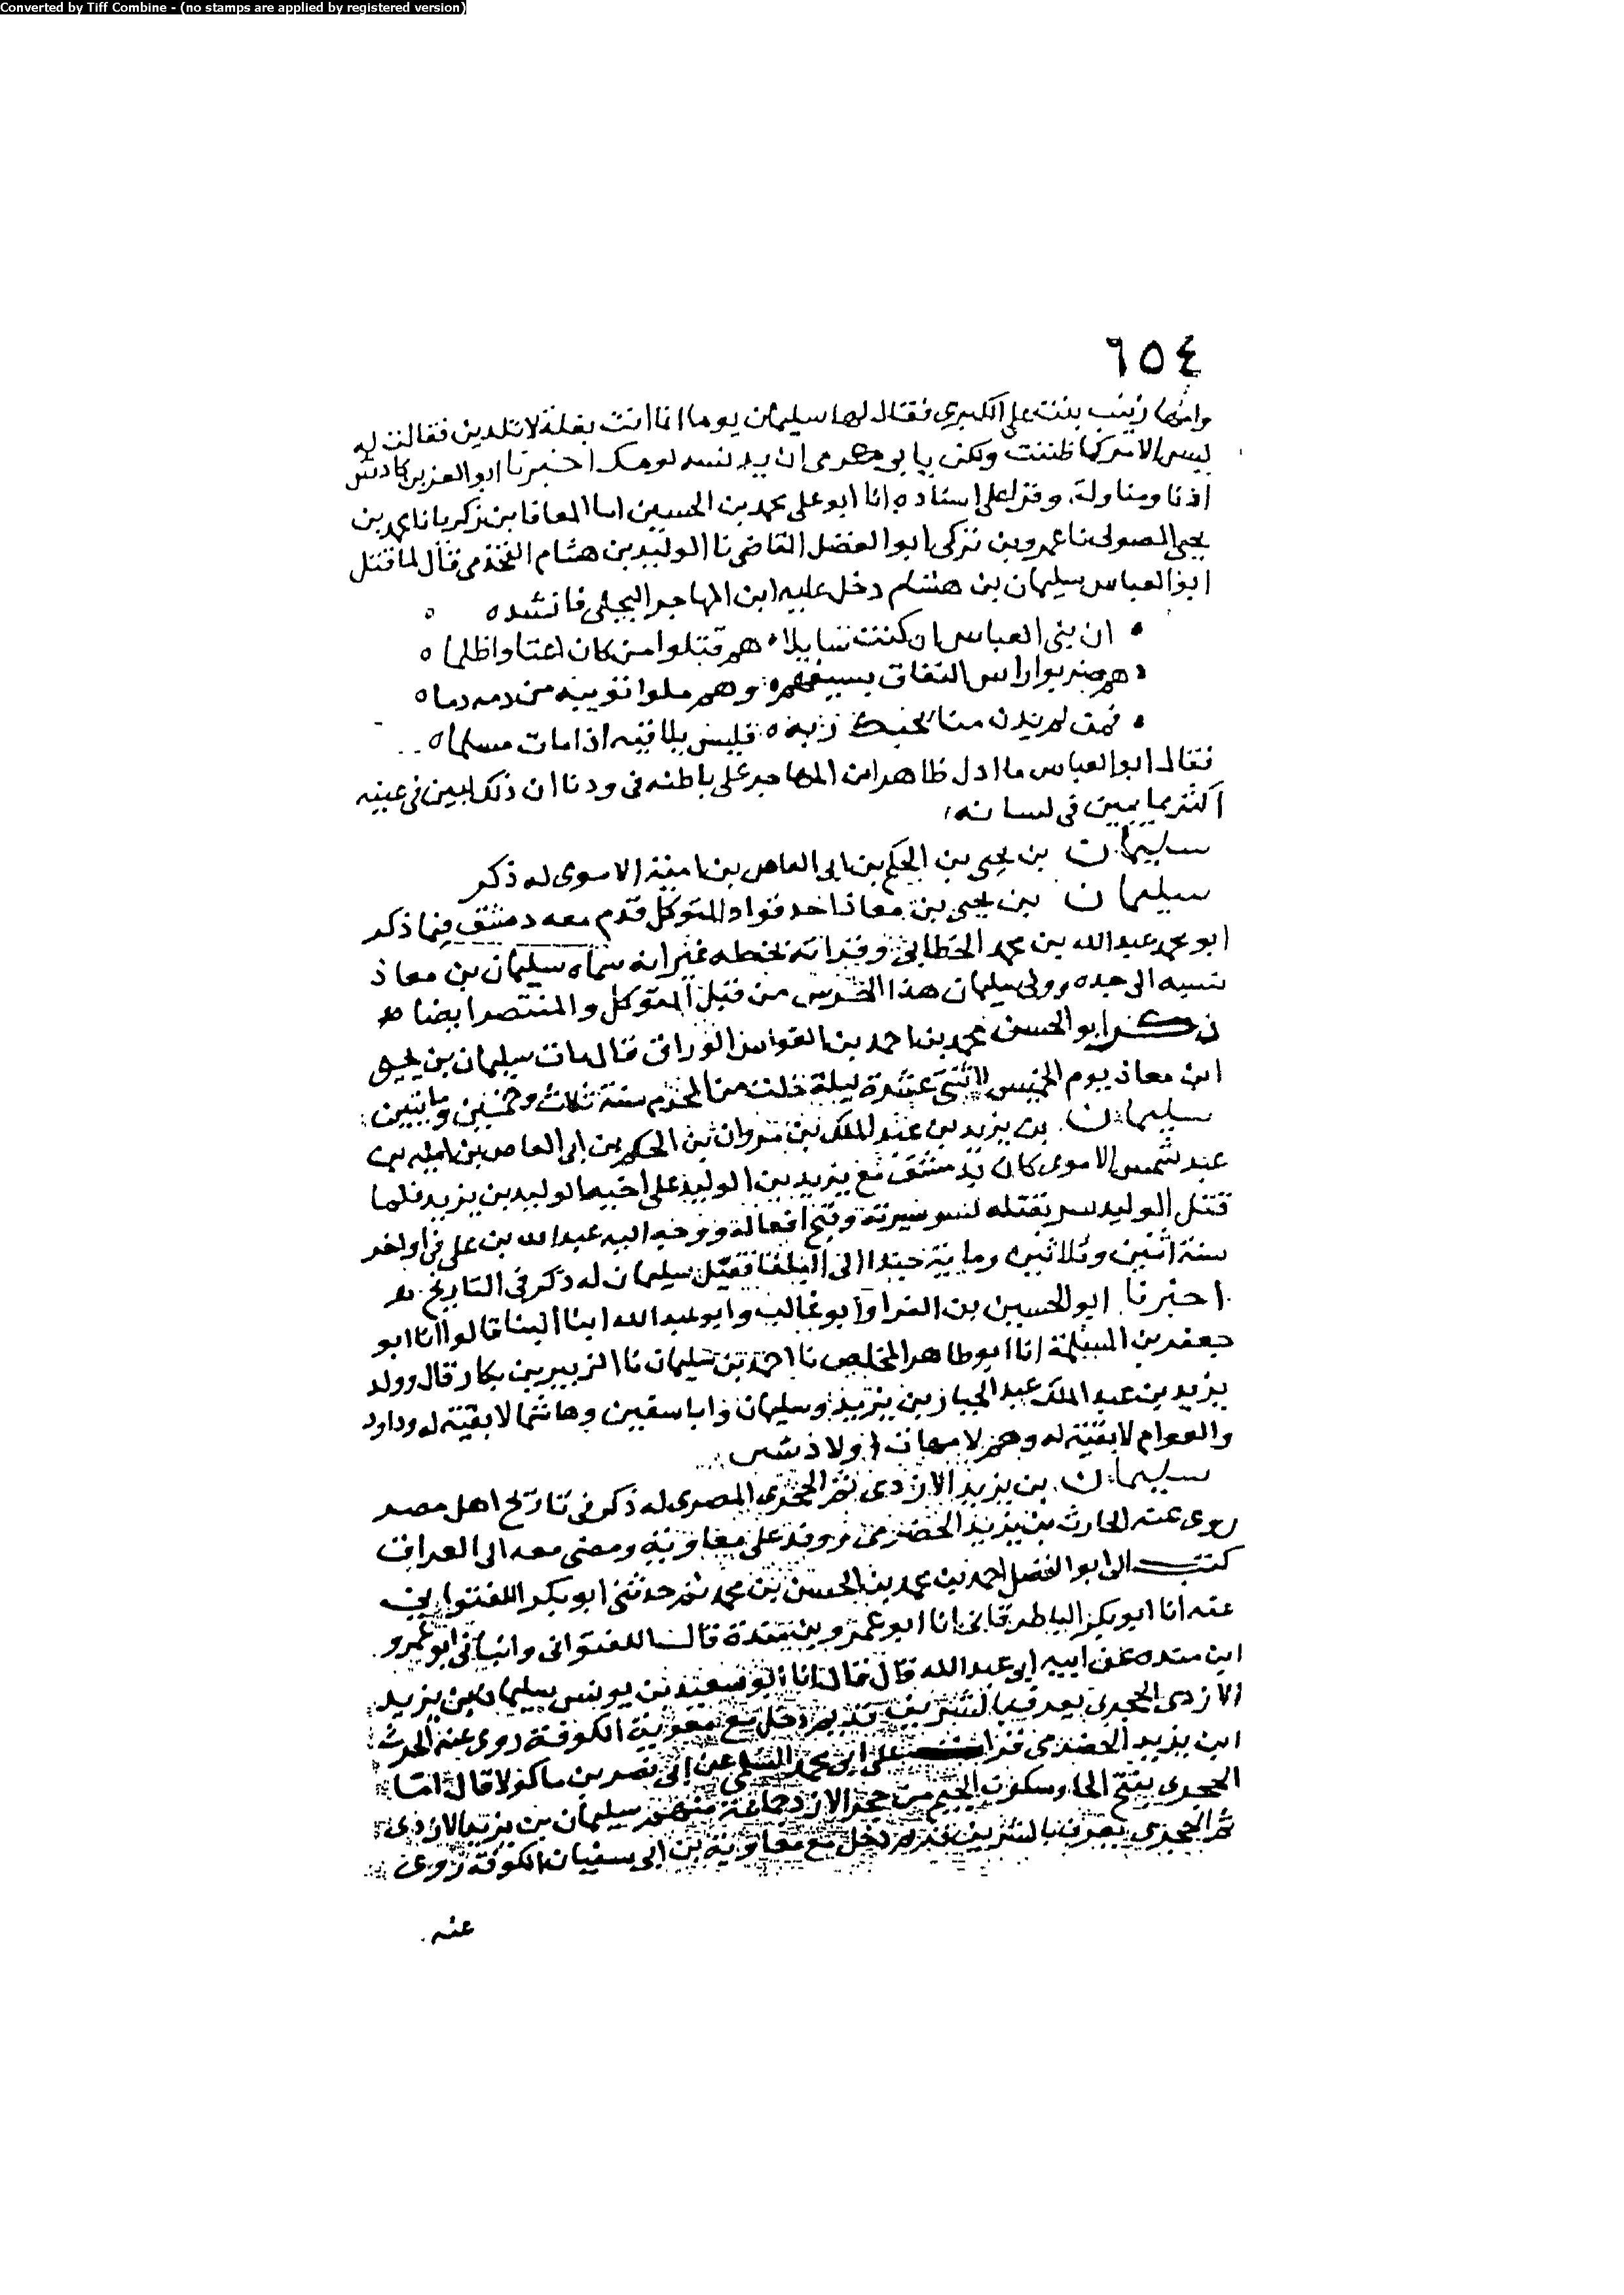 Converted by Tiff Combine - (no stamps are applied by registered version)
٦٥٤
وامها زينب بنت على الكبرى فقال لها سليمان يوما انما انت بغلة لا تلدين فقالت له
ليس الامر كما ظننت ولكن يابى كرمى ان يدنسه لومك اخبرنا ابو العز بن كادش
اذنا ومناولة وقرا على اسناده انا ابو على محمد بن الحسين انا المعافا بن زكريا نا محمد بن
يحيى الصولى نا عمرو بن تركى ابو الفضل القاضى نا الوليد بن هشام القحذمى قال لما قتل
ابو العباس سليمان بن هشام دخل عليه ابن المهاجر البجلى فانشده
ان بنى العباس ان كنت سايلا هم قتلوا من كان اعتا واظلما
هم ضربوا راس النفاق بسيفهم وهم ملوا ثوبيه من دمه دما
فمن لم يدن منا بحبك ربه فليس يلاقيه اذا مات مسلما
فقال ابو العباس ما ادل ظاهر ابن المهاجر على باطنه فى ودنا ان ذلك ليبين فى عينيه
اكثر مما يبين فى لسانه
سليمان بن يحيى بن الحكم بن ابى العاص بن امية الاموى له ذكر
سليمان بن يحيى بن معاذ احد قواد المتوكل قدم معه دمشق فيما ذكر
ابو محمد عبد الله بن محمد الخطابى وقراته بخطه غير انه سماه سليمان بن معاذ
نسبه الى جده وولى سليمان هذا الحرس من قبل المتوكل والمنتصر ايضا
ذكر ابو الحسن محمد بن احمد بن القواس الوراق قال مات سليمان بن يحيى
ابن معاذ يوم الخميس لاثنتى عشرة ليلة خلت من المحرم سنة ثلاث وخمسين ومايتين
سليمان بن يزيد بن عبد الملك بن مروان بن الحكم بن ابى العاص بن امية بن
عبد شمس الاموى كان بدمشق مع يزيد بن الوليد على اخيه الوليد بن يزيد فلما
قتل الوليد سر بقتله لسو سيرته وقبح افعاله ووجه اليه عبد الله بن على فى اواخر
سنة اثنين وثلاثين وماية جندا الى البلقا فقتل سليمان له ذكر فى التاريخ
اخبرنا ابو الحسين بن الفرا وابو غالب وابو عبد الله ابنا البنا قالوا انا ابو
جعفر بن المسلمة انا ابو طاهر المخلص نا احمد بن سليمان نا الزبير بن بكار قال وولد
يزيد بن عبد الملك عبد الجبار بن يزيد وسليمان وابا سفين وهاشما لا بقية له وداود
والعوام لا بقية له وهم لامهات اولاد شتى
سليمان بن يزيد الازدى ثم الحجرى المصرى له ذكر فى تاريخ اهل مصر
روى عنه الحارث بن يزيد الحضرمى ووفد على معاوية ومضى معه الى العراق
كتب الى ابو الفضل احمد بن محمد بن الحسن بن محمد ثم حدثنى ابو بكر اللفتوانى
عنه انا ابو بكر الباطرقانى انا ابو عمرو بن مندة قال اللفتوانى وانبانى ابو عمرو
ابن منده عن ابيه ابى عبد الله قال قال انا ابو سعيد بن يونس سليمان بن يزيد
الازدى الحجرى يعرف بالشريف قديم دخل مع معوية الكوفة روى عنه الحرث
ابن يزيد الحضرمى قرات على ابى محمد السلمى عن ابى نصر بن ماكولا قال اما
الحجرى بفتح الحا وسكون الجيم من حجر الازد جماعة منهم سليمان بن يزيد الازدى
ثم الحجرى يعرف بالشريف قديم دخل مع معاوية بن ابى سفيان الكوفة روى
عنه